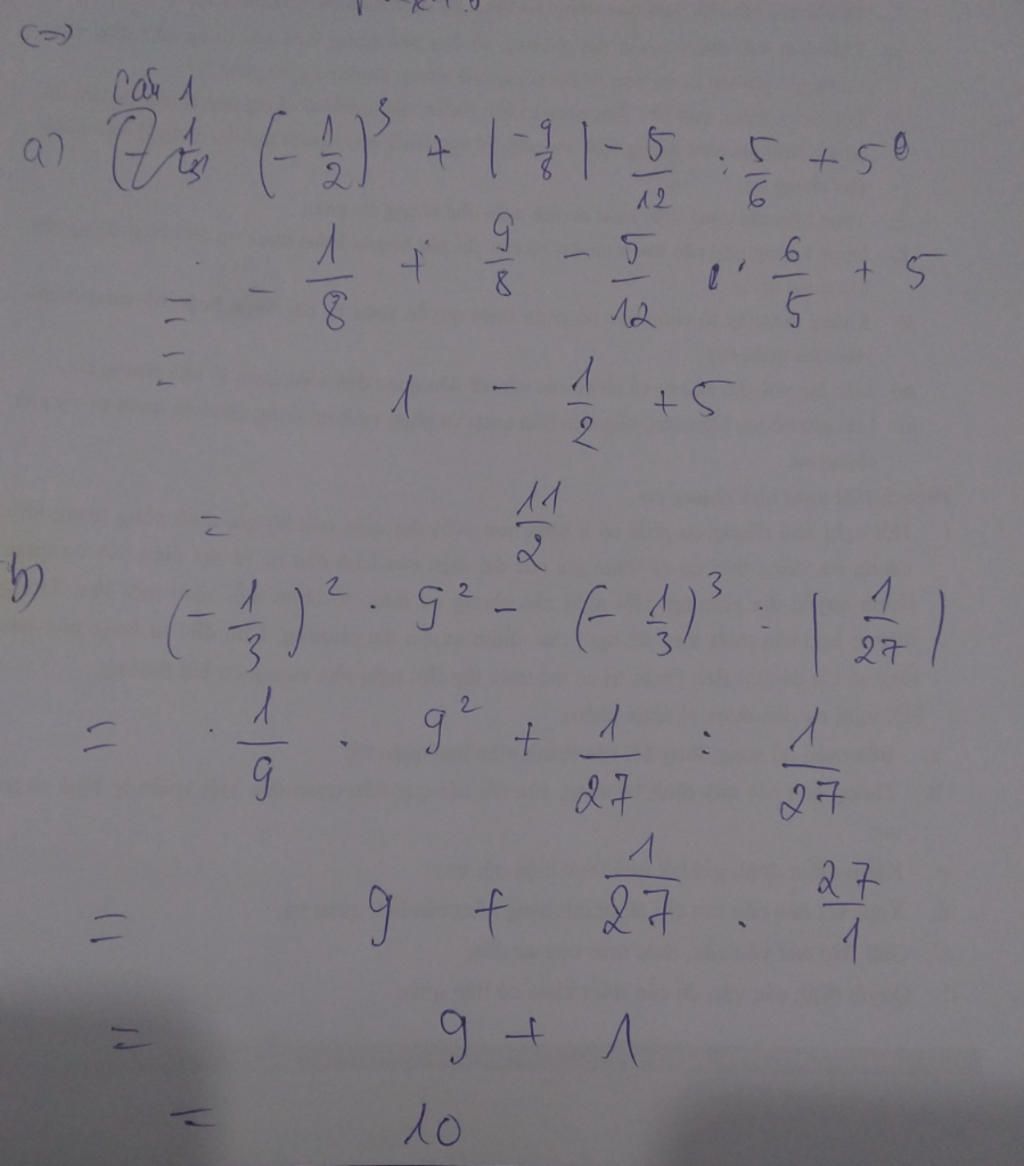 (=)
Câu 1
a) (-1/2)³ + |-9/8| - 5/12 : 5/6 + 5⁰
= - 1/8 + 9/8 - 5/12 · 6/5 + 5
= 1 - 1/2 + 5
= 11/2
b) (-1/3)² · 9² - (-1/3)³ : |1/27|
= 1/9 · 9² + 1/27 : 1/27
= 9 + 1/27 · 27/1
= 9 + 1
= 10